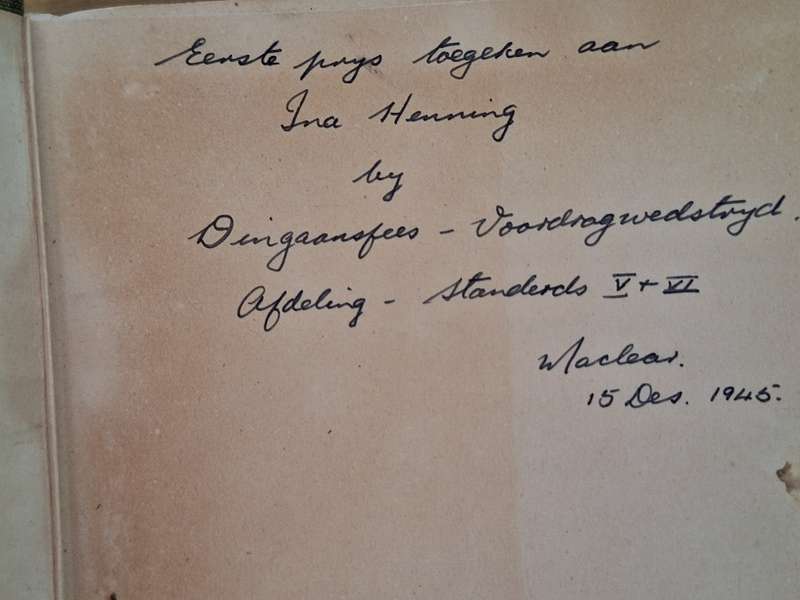 Eerste prys toegeken aan
Ina Henning
by
Dingaansfees - Voordragwedstryd.
Afdeling - Standerds V + VI
Maclear.
15 Des. 1945.